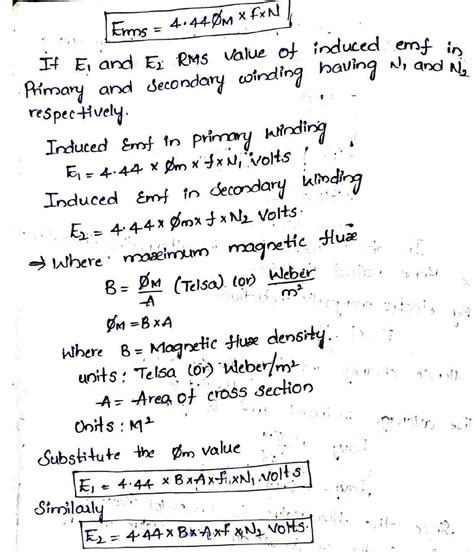 Erms = 4.44 ØM × f × N
If E1 and E2 RMS value of induced emf in
Primary and secondary winding having N1 and N2
respectively.
Induced Emf in primary winding
E1 = 4.44 × Øm × f × N1 volts
Induced Emf in secondary winding
E2 = 4.44 × Øm × f × N2 volts.
⇒ Where maximum magnetic flux
B = ØM/A (Telsa) (or) Weber/m²
ØM = B × A
Where B = Magnetic fluxe density.
units : Telsa (or) Weber/m²
A = Area of cross section
Units : M²
Substitute the Øm value
E1 = 4.44 × B × A × f × N1 volts
Similarly
E2 = 4.44 × B × A × f × N2 volts.